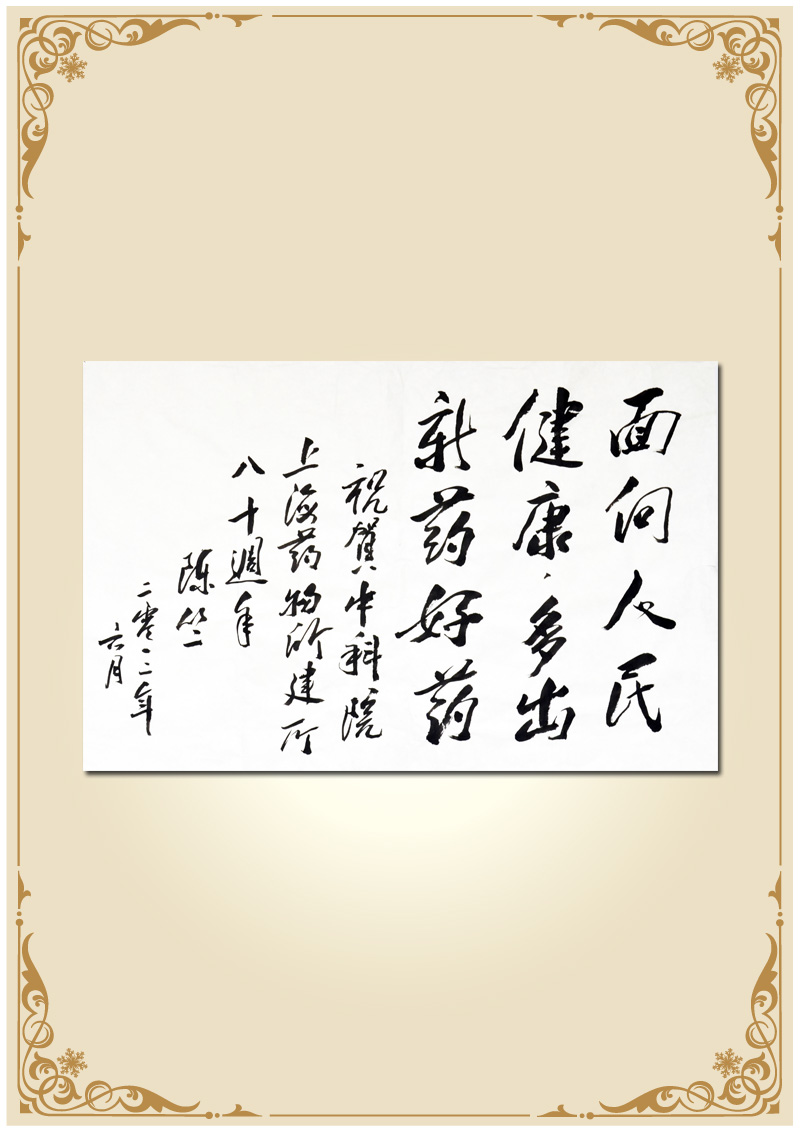 面向人民
健康·多出
新药好药
祝贺中科院
上海药物所建所
八十週年
陈竺
二零一二年
六月